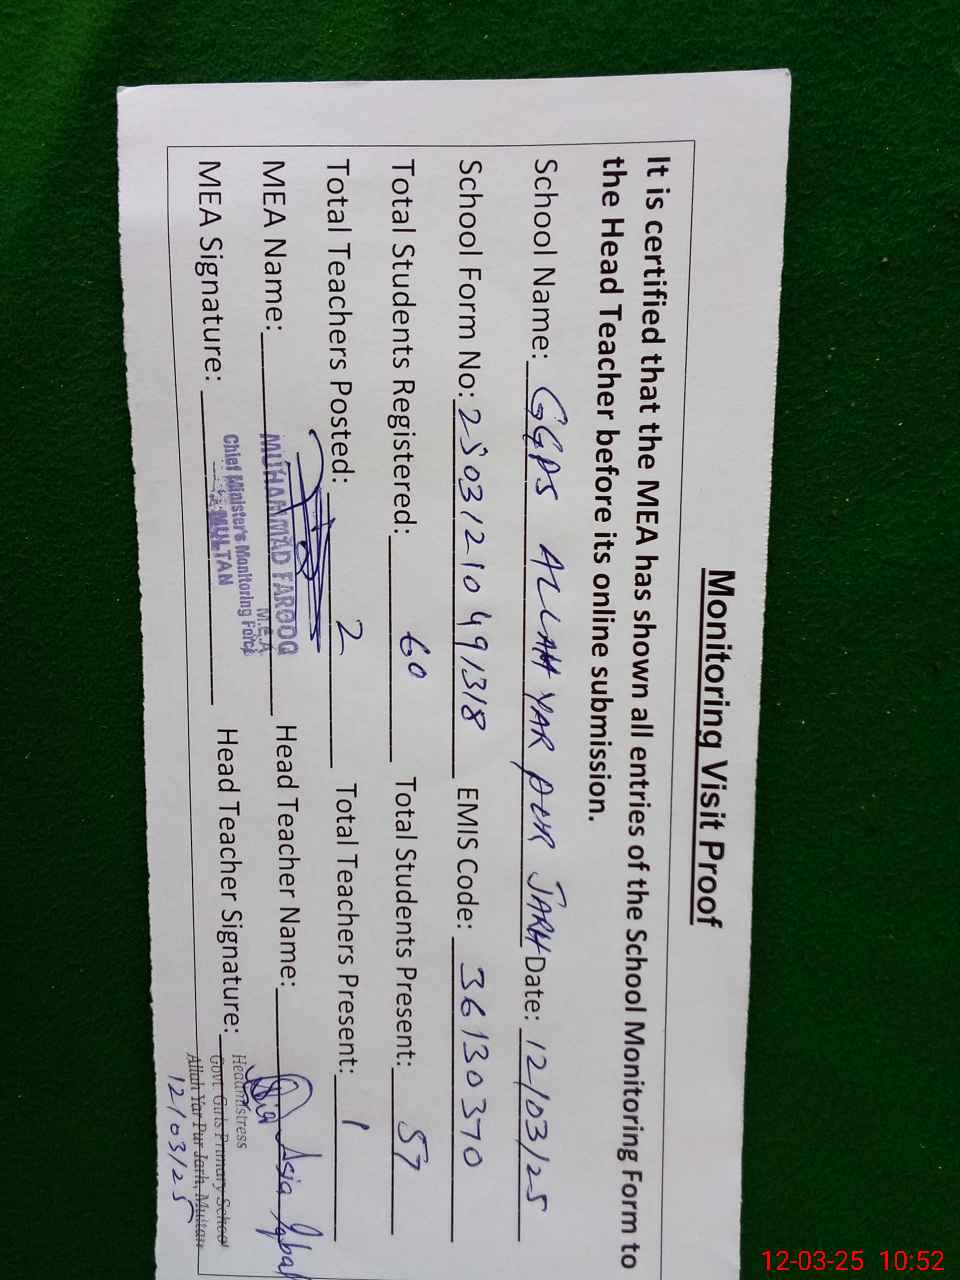 Monitoring Visit Proof
It is certified that the MEA has shown all entries of the School Monitoring Form to
the Head Teacher before its online submission.
School Name: GGPS ALLAH YAR PUR JARH Date: 12/03/25
School Form No: 2503121049 1318 EMIS Code: 36130370
Total Students Registered: 60 Total Students Present: 57
Total Teachers Posted: 2 Total Teachers Present: 1
MEA Name: MUHAMMAD FAROOQ Head Teacher Name: Asia Iqbal
M.E.A
Chief Minister's Monitoring Force
MULTAN
MEA Signature: Head Teacher Signature: Asia
Headmistress
Govt. Girls Primary School
Allah Yar Pur Jarh, Multan
12/03/25
12-03-25 10:52